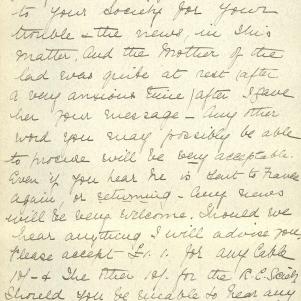 to your Society for your
trouble & the news, in this
matter. And the Mother of the
lad was quite at rest (after
a very anxious time) after I gave
her your message - Any other
word you may possibly be able
to procure will be very acceptable.
Even if you hear he is sent to France
again, or returning - Any news
will be very welcome. Should we
hear anything I will advise you
Please accept £1. 1. for any Cable
10/- & the other 10/. for the R.C. Society
Should you be unable to hear any